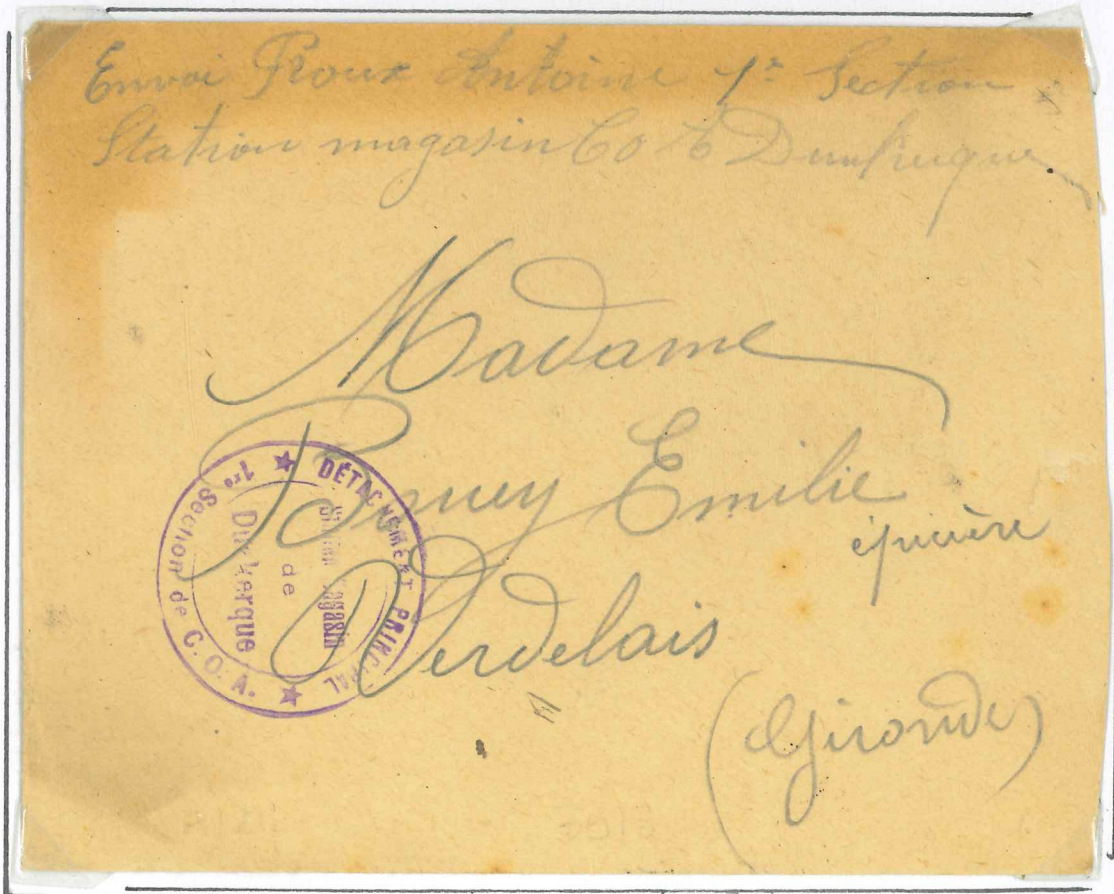 Envoi Roux Antoine 1re Section
Station magasin CoA Dunkerque
Madame
Emilie
épicière
Verdelais
(Gironde)
★ DÉTACHEMENT PRINCIPAL ★
1re Section de C. O. A.
Station Magasin
de
Dunkerque